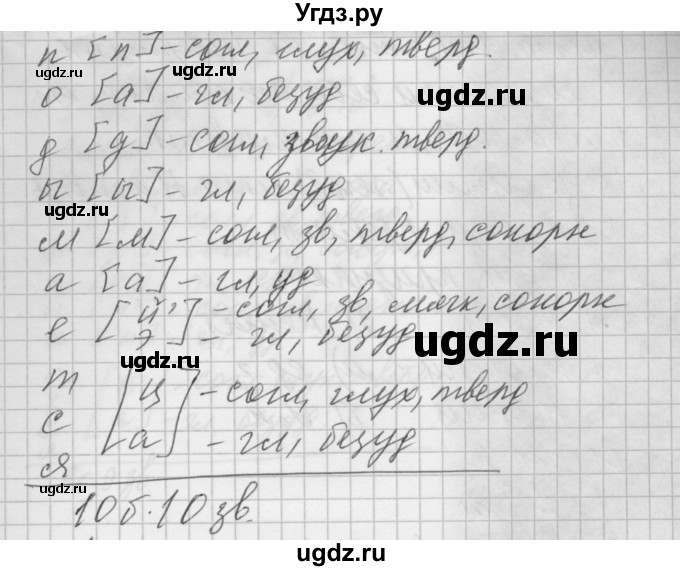 Угдз.ру
п [п] - согл, глух, тверд.
о [а] - гл, безуд
д [д] - согл, звук. тверд.
ы [ы] - гл, безуд
м [м] - согл, зв, тверд, сонорн
а [а] - гл, уд
е [й' - согл, зв, мягк, сонорн
э] - гл, безуд
т
с [ц - согл, глух, тверд
я а] - гл, безуд
10 б. 10 зв.
ugdz.ru
ugdz.ru
ugdz.ru
ugdz.ru
ugdz.ru
ugdz.ru
ugdz.ru
ugdz.ru
ugdz.ru